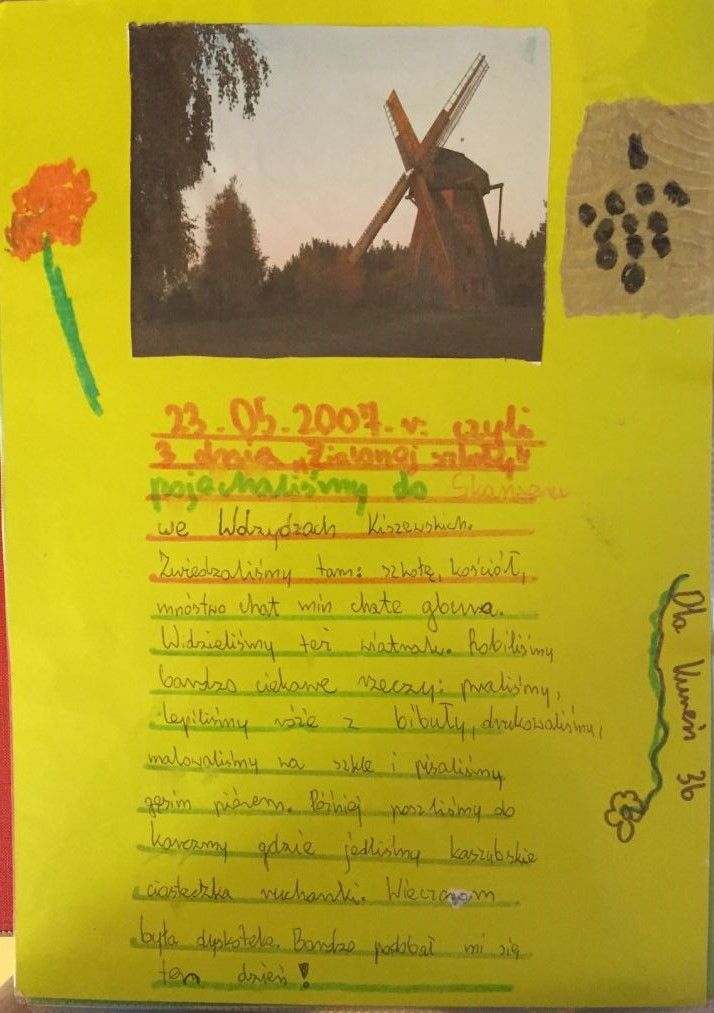 23.05.2007.r. czyli
3 dnia „Zielonej szkoły"
pojechaliśmy do Skansenu
we Wdzydzach Kiszewskich.
Zwiedzaliśmy tam: szkołę, kościół,
mnóstwo chat min chatę
Widzieliśmy też wiatrak. Robiliśmy
bardzo ciekawe rzeczy: praliśmy,
lepiliśmy róże z bibuły, drukowaliśmy,
malowaliśmy na szkle i pisaliśmy
gęsim piórem. Później poszliśmy do
karczmy gdzie jedliśmy kaszubskie
ciasteczka ruchanki. Wieczorem
była dyskoteka. Bardzo podobał mi się
ten dzień!
3b